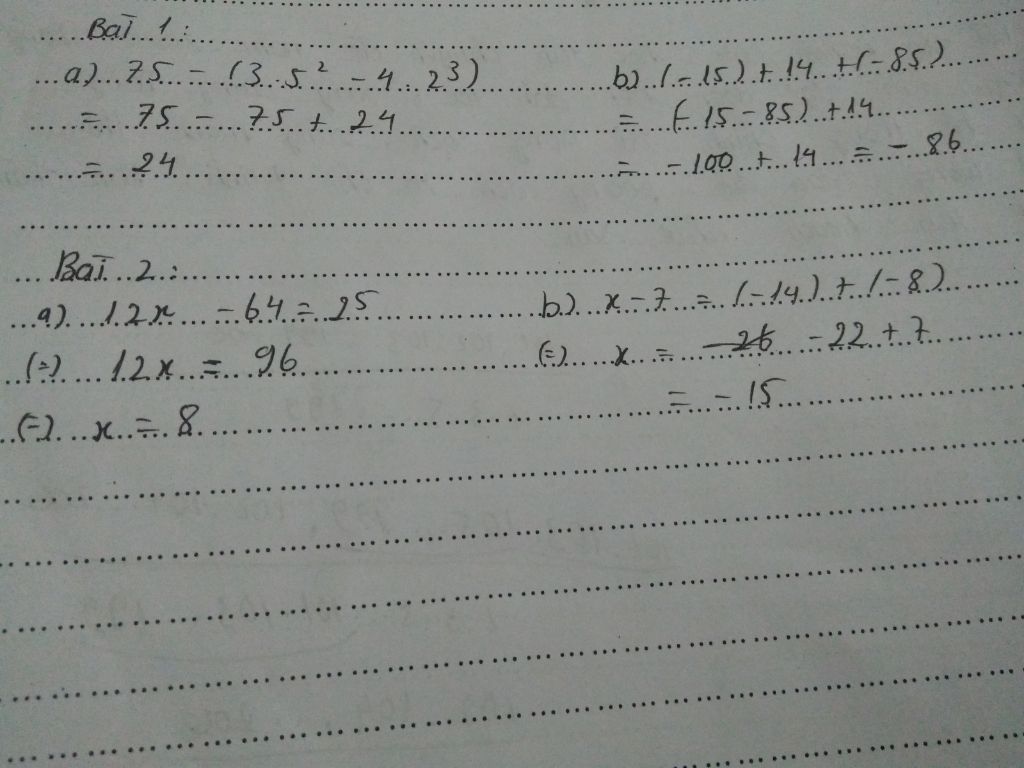 Bài 1:
a) 75 - (3.5² - 4.2³)
= 75 - 75 + 24
= 24
b) (-15) + 14 + (-85)
= (-15-85) + 14
= -100 + 14 = -86
Bài 2:
a) 12x - 64 = 2⁵
(=) 12x = 96
(=) x = 8
b) x - 7 = (-14) + (-8)
(=) x = -22 + 7
= -15